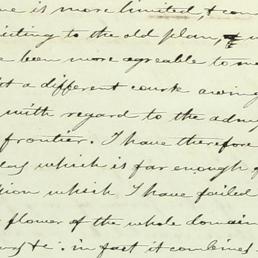 is more limited, &
to the old plan, &
been more agreeable to me
a different
with regard to the
frontier. I have therefore
which is far enough
which I have failed
flower of the whole domain
in fact it combines